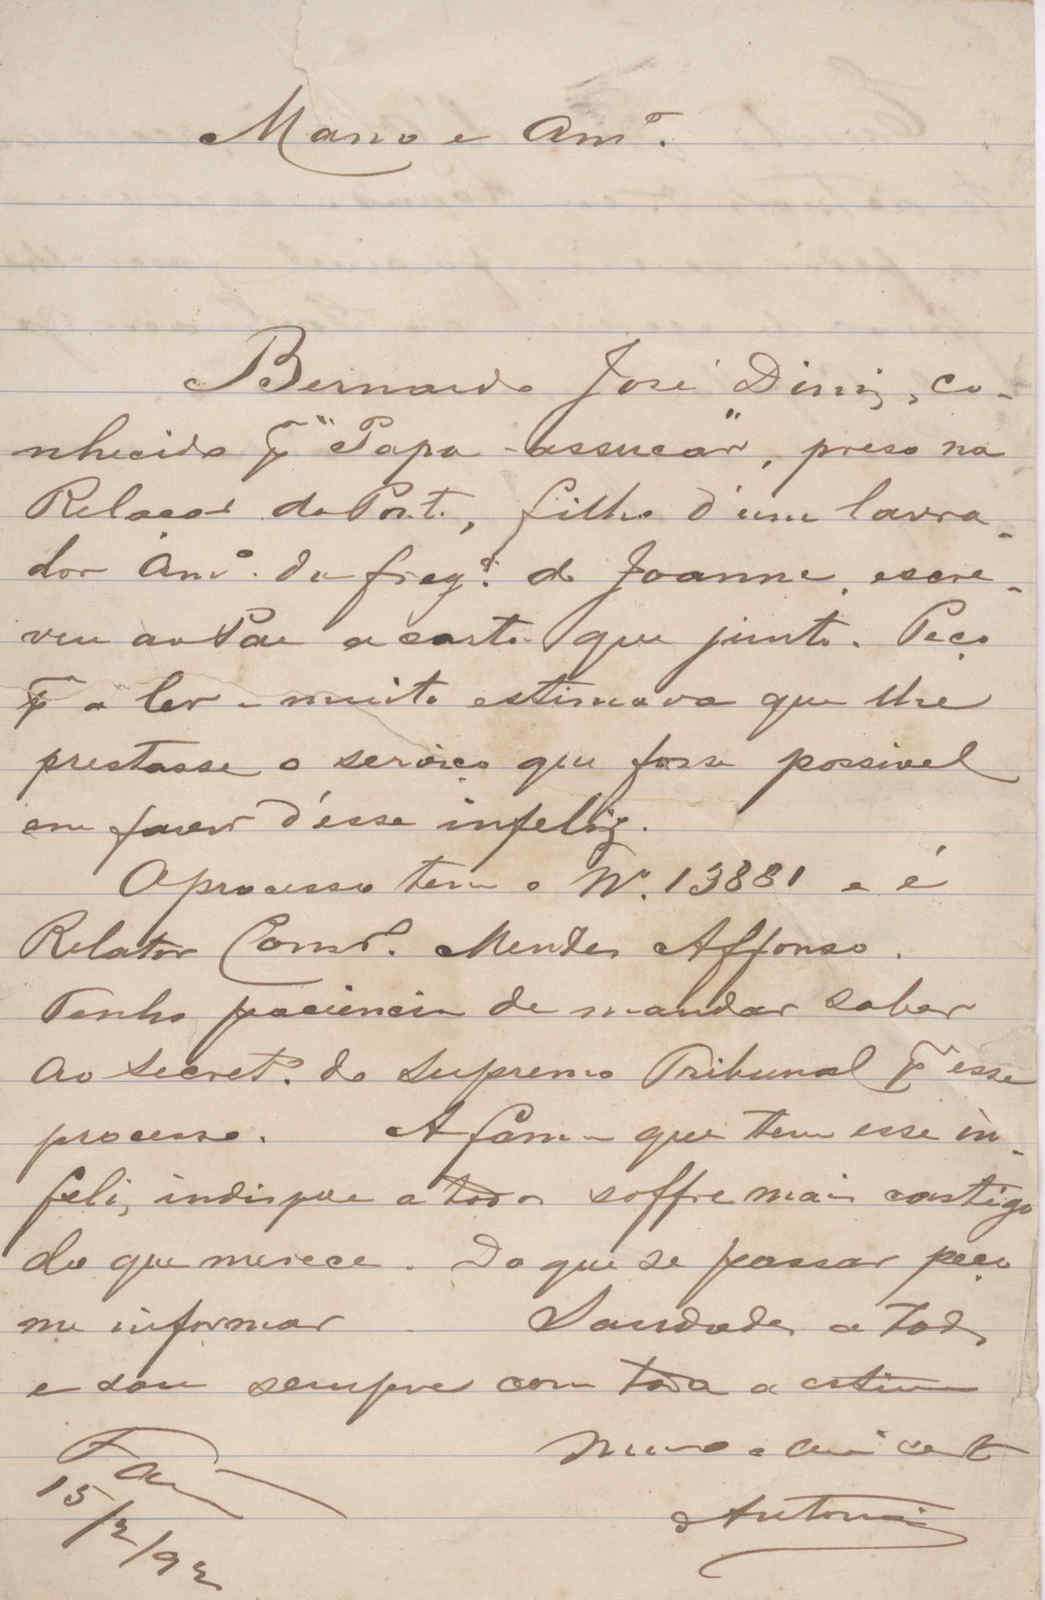 Mano e Amº.
Bernardo José Diniz, co-
nhecido pr "Papa-assucar", preso na
Relação do Porto, filho d'um lavra-
dor Amº. da fregª. de Joanne, escre-
veu ao Pae a carta que junto. Peço
pª a ler e muito estimava que lhe
prestasse o serviço que fosse possivel
em favor d'esse infeliz.
O processo tem o Nº. 13881 e é
Relator Consº. Mendes Affonso.
Tenha paciencia de mandar saber
ao Secretº. do Supremo Tribunal pr esse
processo. A fama que tem esse in-
feliz, indispoe a todos soffre mais castigo
do que merece. Do que se passar peço
me informar Saudades a todos
e sou sempre com toda a estima
Mano e am certo
Fam
15/2/92
Antonio